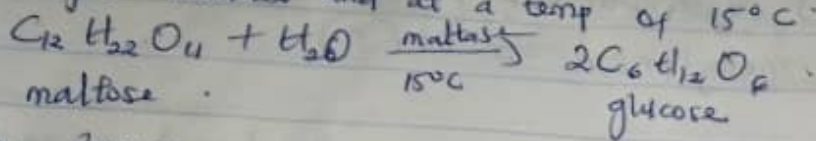 at a temp of 15°C
C12 H22 O11 + H2O maltase 15°C 2C6 H12 O6 .
maltose . glucose